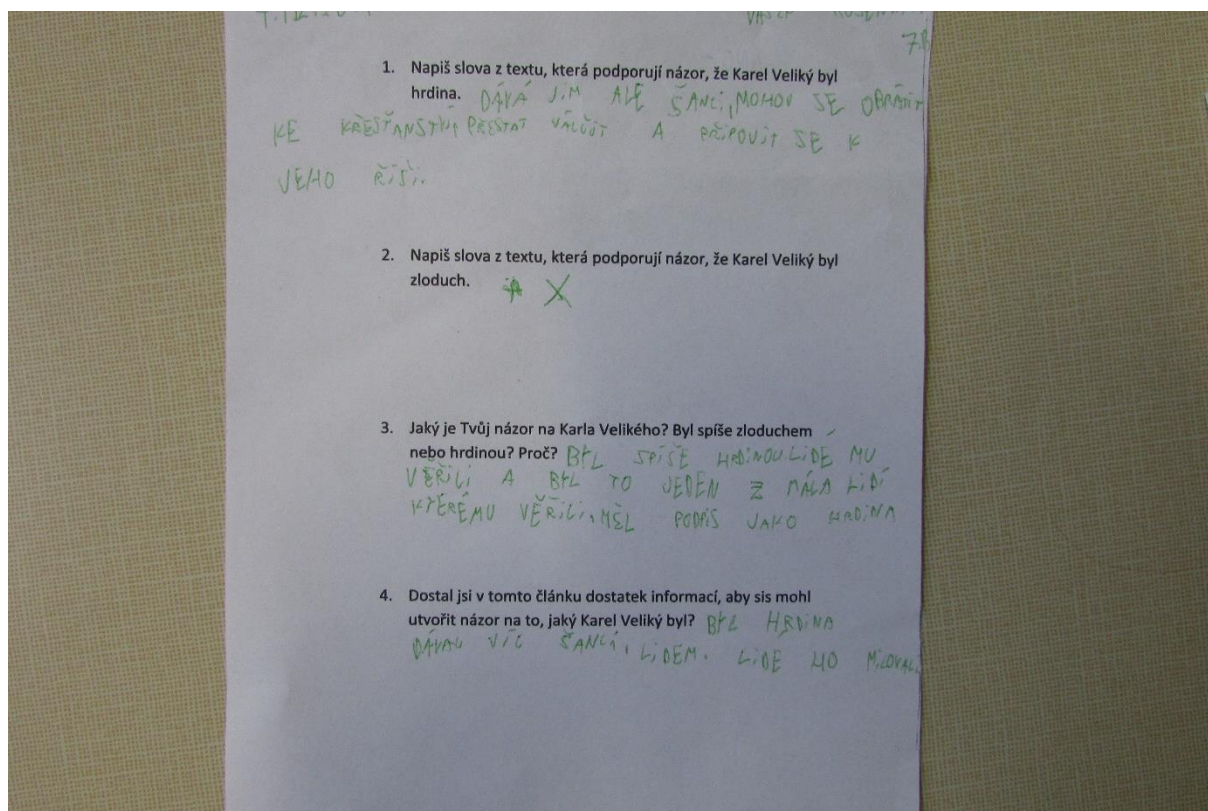 7.B
1. Napiš slova z textu, která podporují názor, že Karel Veliký byl
hrdina. DÁVÁ JIM ALE ŠANCI, MOHOU SE OBRÁTIT
KE KŘESŤANSTVÍ, PŘESTAT VÁLČIT A PŘIPOVJIT SE K
JEHO ŘÍŠI.
2. Napiš slova z textu, která podporují názor, že Karel Veliký byl
zloduch. X
3. Jaký je Tvůj názor na Karla Velikého? Byl spíše zloduchem
nebo hrdinou? Proč? BYL SPÍŠE HRDINOU. LIDÉ MU
VĚŘILI A BYL TO JEDEN Z MÁLA LIDÍ
KTERÉMU VĚŘILI, MĚL PODPIS JAKO HRDINA
4. Dostal jsi v tomto článku dostatek informací, aby sis mohl
utvořit názor na to, jaký Karel Veliký byl? BYL HRDINA
DÁVAL VÍC ŠANCÍ, LIDEM. LIDÉ HO MILOVALI